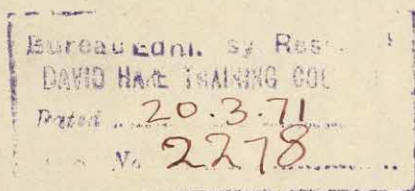 Bureau Ednl. sy Res
DAVID HARE TRAINING COL
Dated ... 20.3.71
No 2278